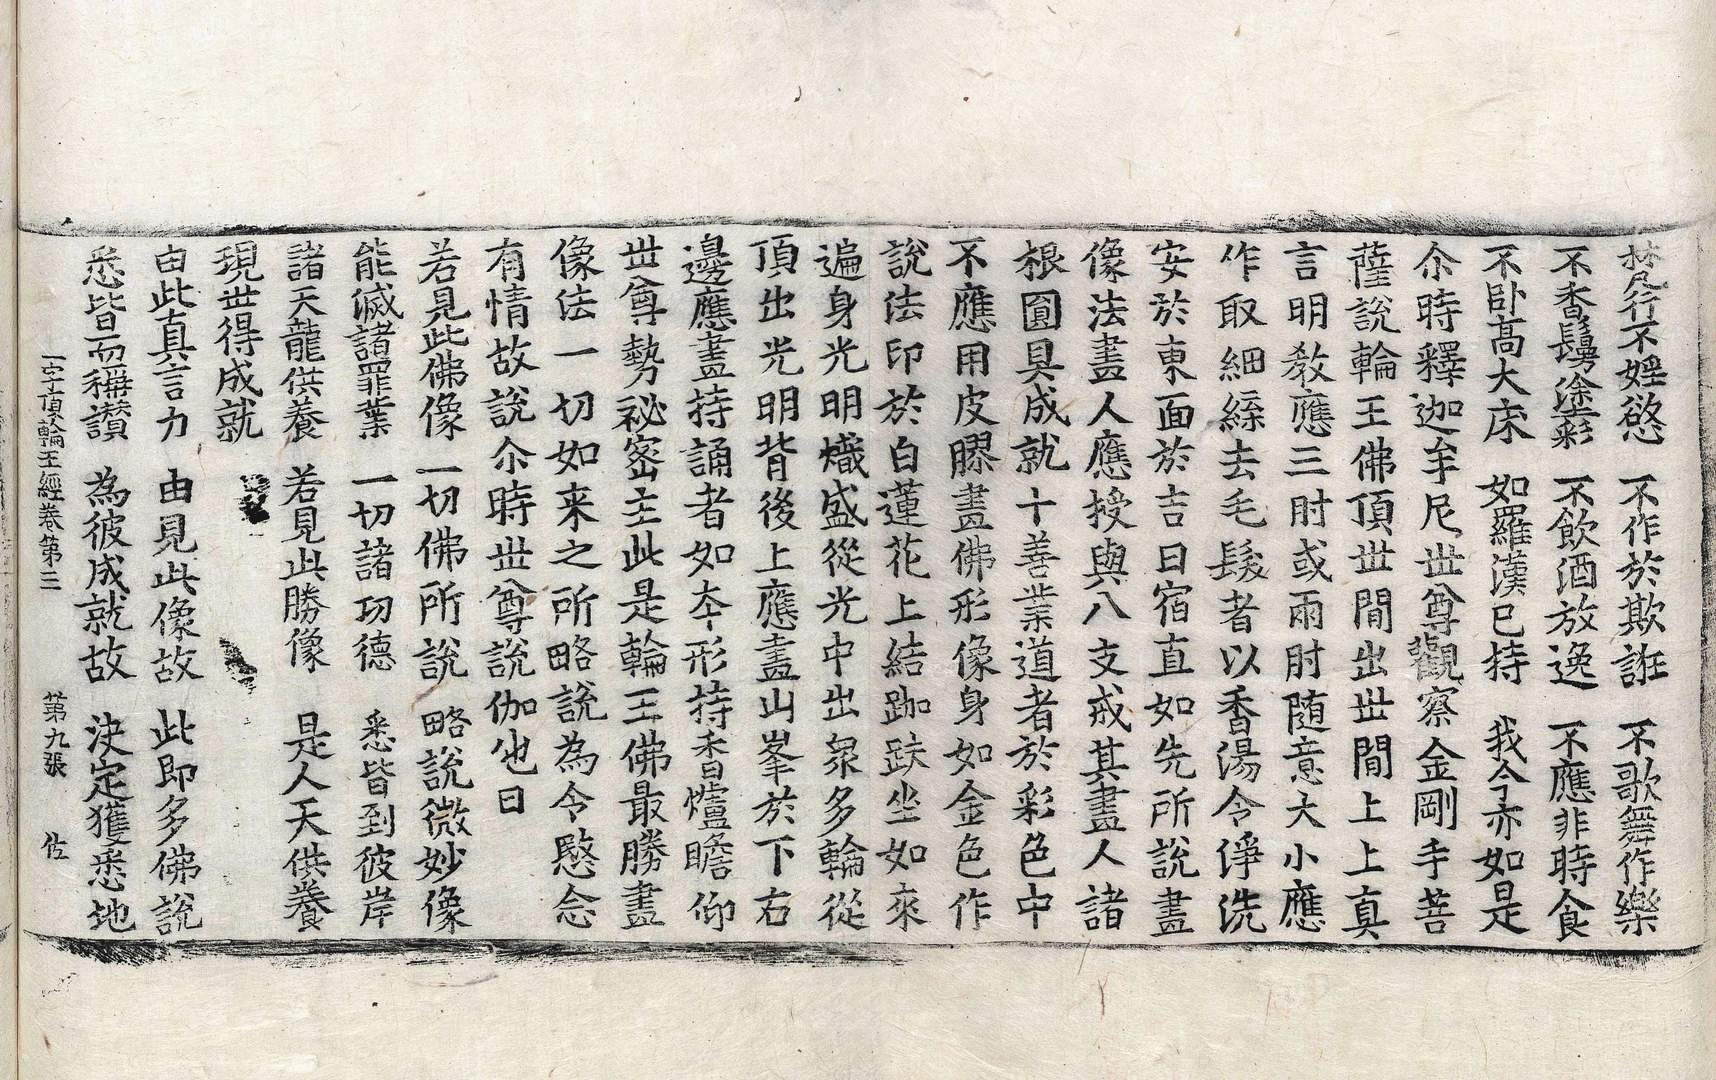 梵行不婬慾　不作於欺誑　不歌舞作樂
不香鬘塗彩　不飮酒放逸　不應非時食
不卧高大床　如羅漢已持　我今亦如是
尒時釋迦牟尼世尊觀察金剛手菩
薩說輪王佛頂世間出世間上上真
言明教應三肘或兩肘隨意大小應
作取細絲去毛髮者以香湯令淨洗
安於東面於吉日宿直如先所說畫
像法畫人應授與八支戒其畫人諸
根圓具成就十善業道者於彩色中
不應用皮膠畫佛形像身如金色作
說法印於白蓮花上結跏趺坐如來
遍身光明熾盛從光中出衆多輪從
頂出光明背後上應畫山峯於下右
邊應畫持誦者如本形持香爐瞻仰
世尊勢祕密主此是輪王佛最勝畫
像法一切如来之所略說為令愍念
有情故說尒時世尊說伽他曰
若見此佛像　一切佛所說　略說微妙像
能滅諸罪業　一切諸功德　悉皆到彼岸
諸天龍供養　若見此勝像　是人天供養
現世得成就
由此真言力　由見此像故　此即多佛說
悉皆而稱讃　為彼成就故　決定獲悉地
一字頂輪王經卷第三　第九張　佐